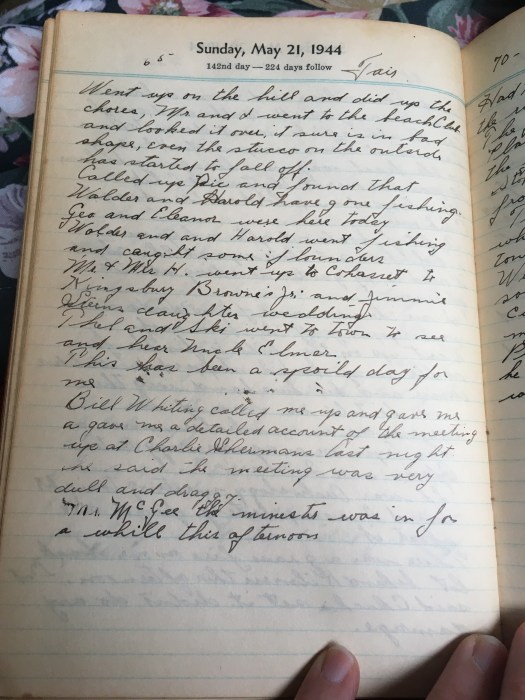 Sunday, May 21, 1944
142nd day — 224 days follow
65 Fair
Went up on the hill and did up the
chores, Mr and I went to the beach Club
and looked it over, it sure is in bad
shape, even the stucco on the outside
has started to fall off.
Called up Pic and found that
Walder and Harold have gone fishing.
Geo and Eleanor were here today
Walder and and Harold went fishing
and caught some flounders
Mr. & Mrs H. went up to Cohasset to
Kingsbury Browne's Jr. and Jimmie
Steins daughter wedding.
Thel and Ski went to town to see
and hear Uncle Elmer
This has been a spoild day for
me
Bill Whiting called me up and gave me
a gave me a detailed account of the meeting
up at Charlie Shermans last night
he said the meeting was very
dull and draggy.
Mr. McGee the ministr was in for
a whill this afternoon
70-
Had